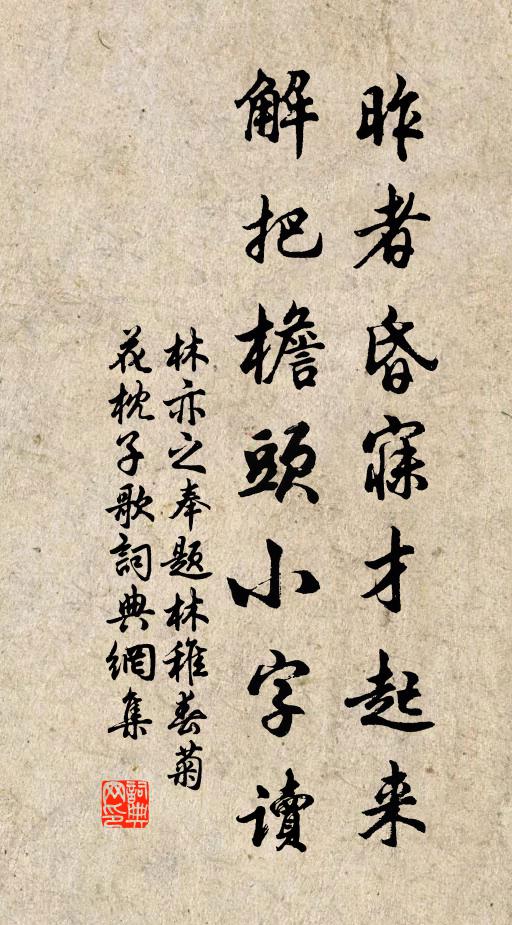 昨者昏寐才起来
解把檐頭小字读
林亦之奉题林稚春菊
花枕子歌詞典網集
詞典网印